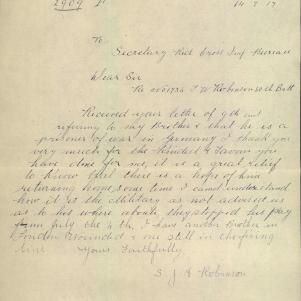 2909
14.7.17
To
Secretary Red Cross Inf Bureau
Dear Sir
Re No 1784 P W Robinson 50th Batt
Received your letter of 9th inst
referring to my Brother & that he is a
prisoner of war in Germany I thank you
very much for the Kindness & Favour you
have done for me, it is a great relief
to Know that there is a hope of him
returning home some time I cant understand
how it is the Military as not advised us
as to his where abouts, they stopped his pay
from July the 4 th. I have another Brother in
London Wounded & one still in the firing
line
Yours Faithfully
S. J. A Robinson